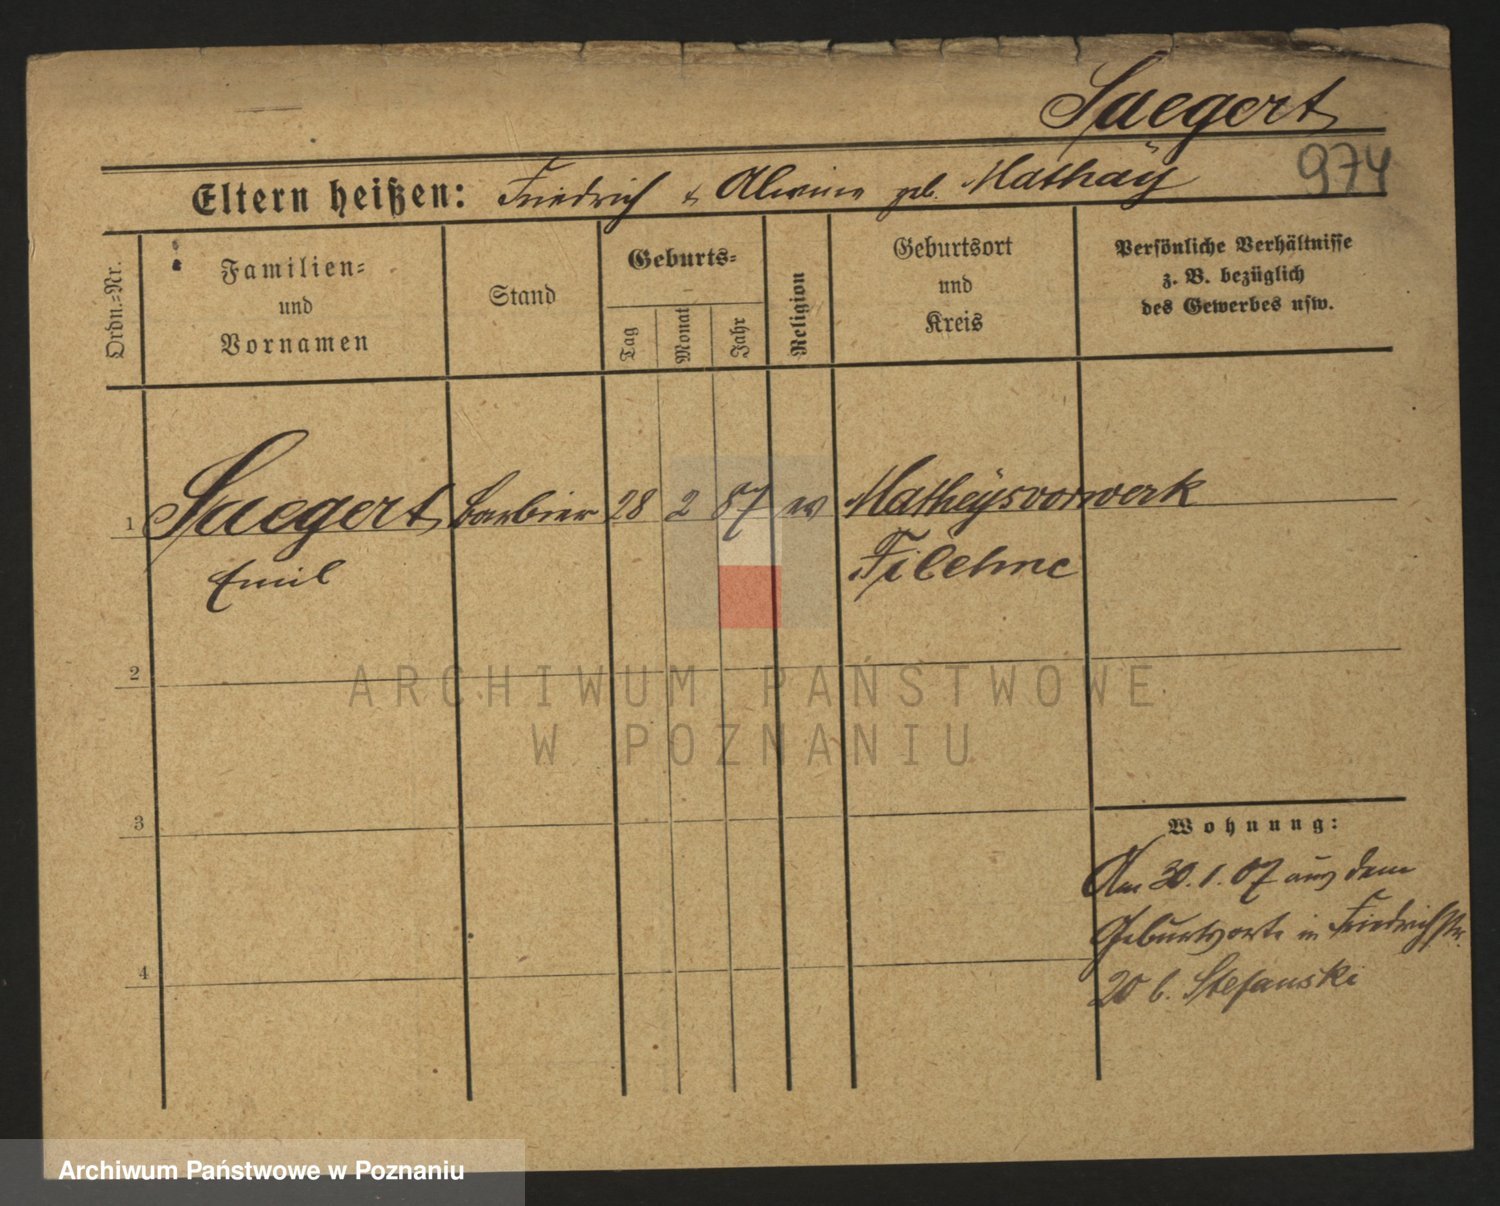 Saegert
974
Eltern heißen: Friedrich & Alwine geb. Mathäy
Ordn.=Nr.
Familien=
und
Vornamen
Stand
Geburts=
Tag
Monat
Jahr
Religion
Geburtsort
und
Kreis
Persönliche Verhältnisse
z. B. bezüglich
des Gewerbes usw.
1 Saegert Barbier 28 2 87 ev Matheysvorwerk
Emil Filehne
2
ARCHIWUM PAŃSTWOWE
W POZNANIU
3
Wohnung:
Am 30.1.07 aus dem
Geburtsorte in Friedrichstr.
4
20 b. Stefanski
Archiwum Państwowe w Poznaniu